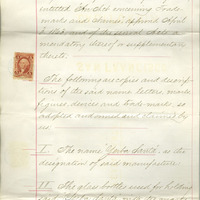 entitled "An Act concerning Trade-
marks and Names" approved April
3, 1863, and of the several acts a-
mendatory thereof or supplementary
thereto.
The following are copies and descrip-
tions of the said name, letters, marks
figures, devices and trade-marks, so
adopted and used and claimed by
us:
I. The name "Yerba Santa" as the
designation of said manufacture.
II. The glass bottles used for holding